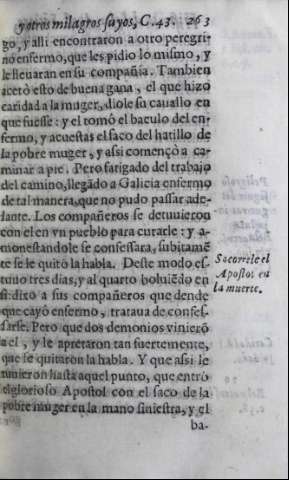 y otros milagros suyos, C. 43. 263
go, y alli encontraron a otro peregri-
no enfermo, que les pidio lo mismo, y
le lleuaran en su compañia. Tambien
acetò esto de buena gana, el que hizo
caridad a la muger, diole su cauallo en
que fuesse: y el tomó el baculo del en-
fermo, y acuestas el saco del hatillo de
la pobre muger, y assi començò a ca-
minar a pie. Pero fatigado del trabajo
del camino, llegado a Galicia enfermo
de tal manera, que no pudo passar ade-
lante. Los compañeros se detuuieron
con el en vn pueblo para curarle: y a-
monestandole se confessara, subitamẽ
te se le quitò la habla. Deste modo es-
tuuo tres dias, y al quarto boluiẽdo en
si dixo a sus compañeros que dende
que cayó enfermo, trataua de confes-
sarse. Pero que dos demonios vinierõ
a el, y le apretaron tan fuertemente,
que le quitaron la habla. Y que assi le
tuuieron hasta aquel punto, que entrò
el glorioso Apostol con el saco de la
pobre muger en la mano siniestra, y el
ba-
Socorrele el
Apostol en
la muerte.